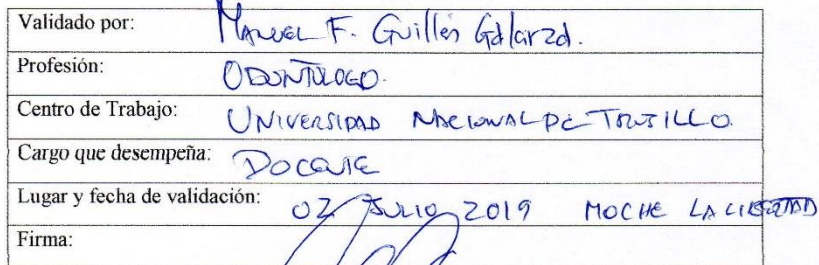 Validado por: Manuel F. Guillén Galarza.
Profesión: ODONTÓLOGO.
Centro de Trabajo: UNIVERSIDAD NACIONAL DE TRUJILLO
Cargo que desempeña: DOCENTE
Lugar y fecha de validación: 02 JULIO 2019 MOCHE LA LIBERTAD
Firma: